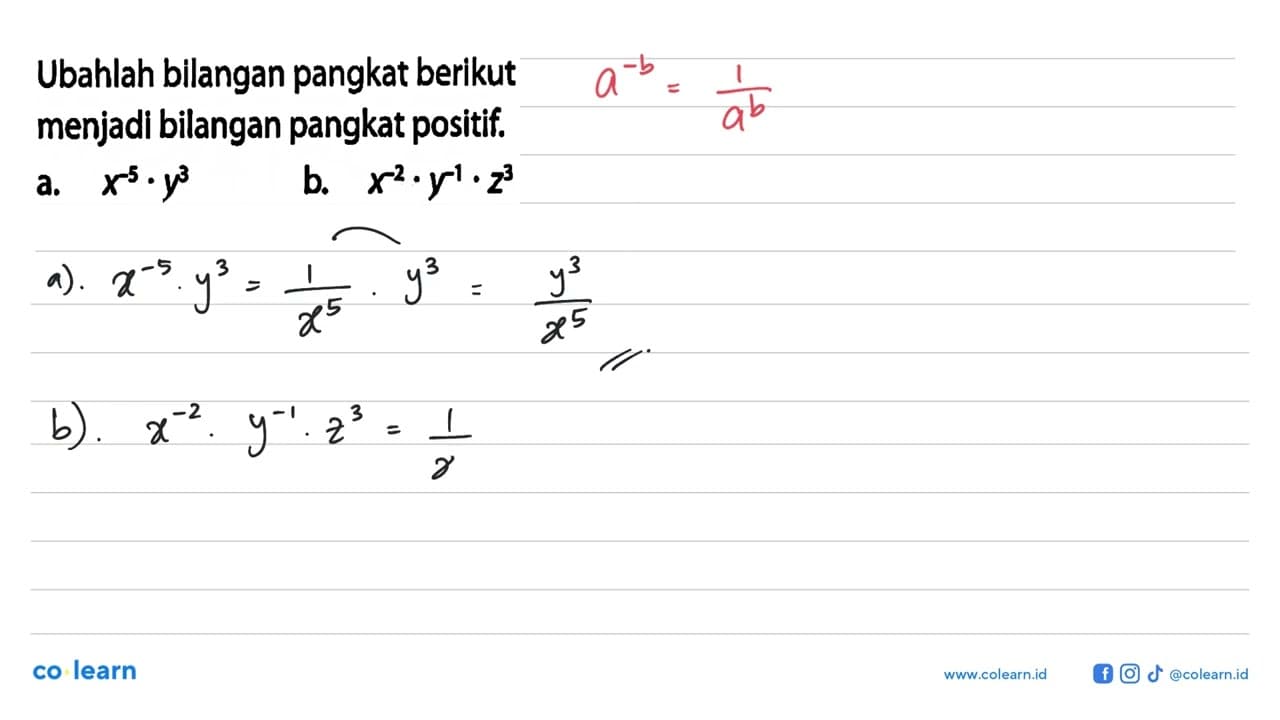 Ubahlah bilangan pangkat berikut
menjadi bilangan pangkat positif.
a. x⁻⁵ · y³ b. x⁻² · y⁻¹ · z³
a⁻ᵇ = 1/aᵇ
a). x⁻⁵ · y³ = 1/x⁵ · y³ = y³/x⁵
b). x⁻² · y⁻¹ · z³ = 1/x
co learn
www.colearn.id @colearn.id